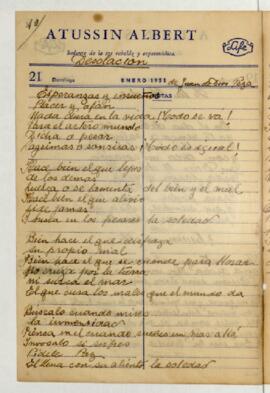 ATUSSIN ALBERT
Señora de la tos rebelde y espasmódica
Life
Desolación
21 Domingo ENERO 1951 de Juan de Dios Peza
NOTAS
Esperanzas y ensueños
Placer y afán
Nada dura en la vida ¡Todo se va!
Para el artero mundo
Dicha o pesar
Lágrimas o sonrisas ¡Todo es igual!
Hace bien el que lejos
de los demás
del bien y el mal
Hace bien el que
Y busca en los pesares la soledad
Bien hace el que disfraza
su propio mal
Bien hace el que se esconde para llorar
No cruza por la tierra
ni surca el mar
El que cura los males que el mundo da
Búscalo cuando mires
la inmensidad
Piensa en el cuando sueñes un mas allá
Invócalo si sufres
Pídele Paz
El llena con su aliento la soledad